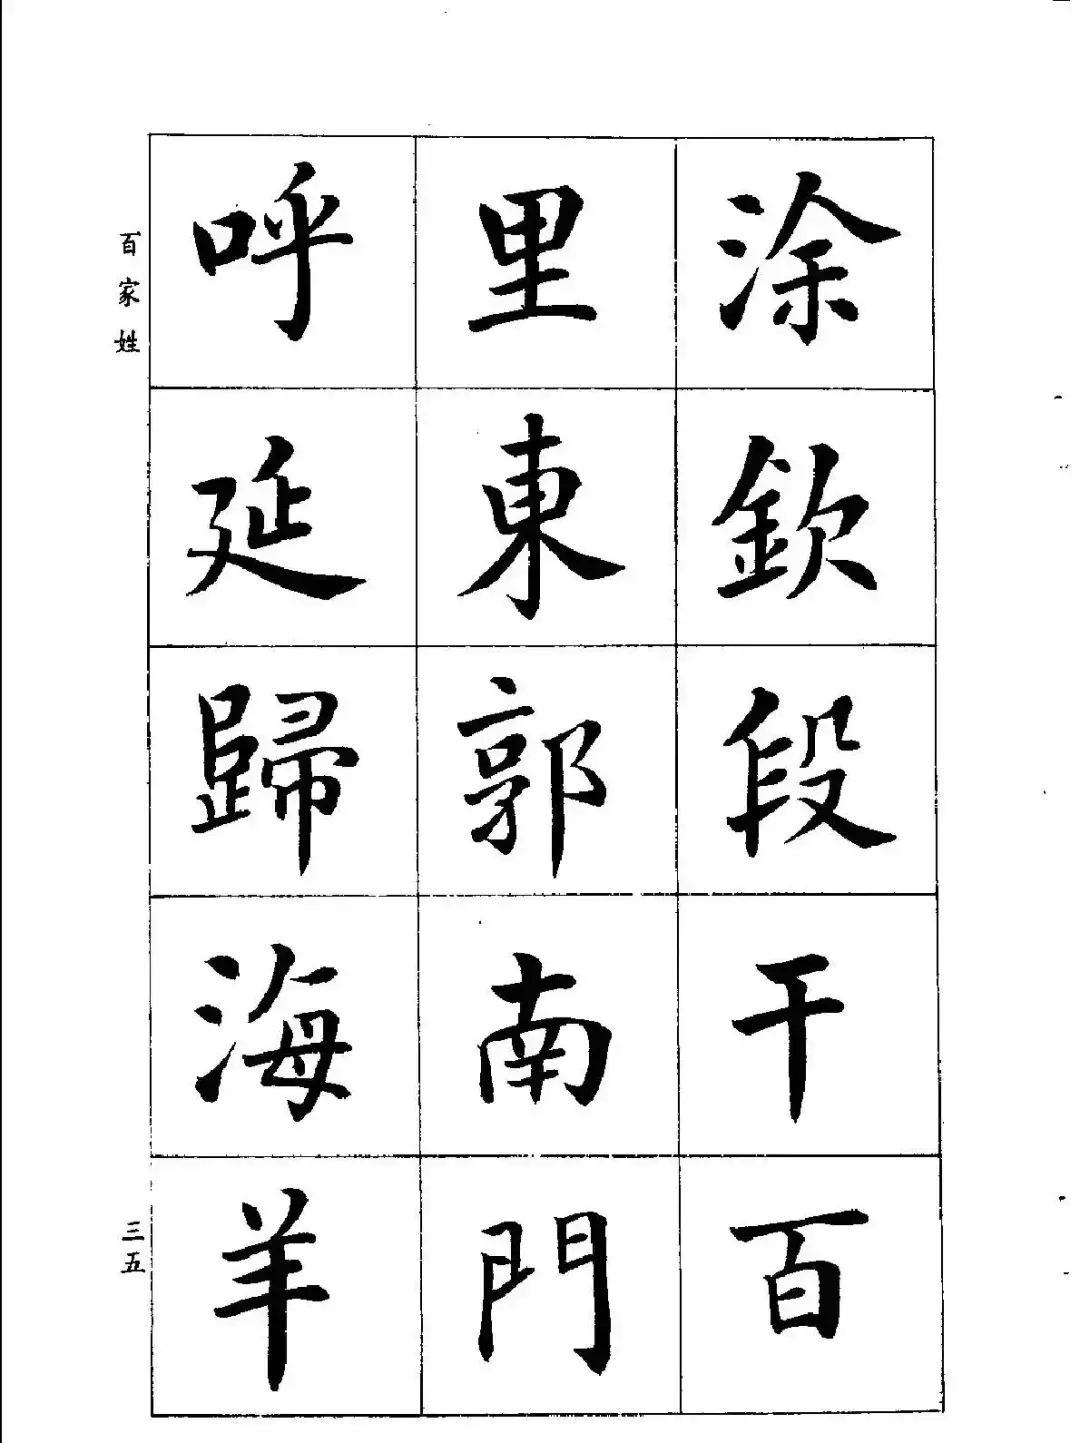 涂欽段干百
里東郭南門
呼延歸海羊
百家姓
三五